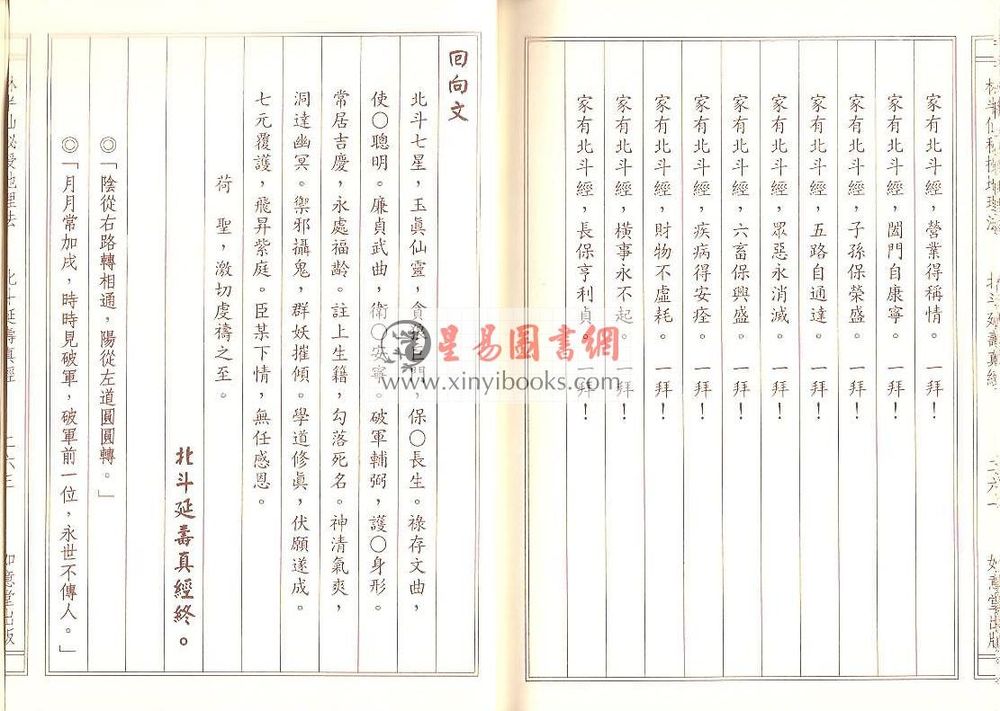 家有北斗經，營業得稱情。一拜！
家有北斗經，闔門自康寧。一拜！
家有北斗經，子孫保榮盛。一拜！
家有北斗經，五路自通達。一拜！
家有北斗經，眾惡永消滅。一拜！
家有北斗經，六畜保興盛。一拜！
家有北斗經，疾病得安痊。一拜！
家有北斗經，財物不虛耗。一拜！
家有北斗經，橫事永不起。一拜！
家有北斗經，長保亨利貞。一拜！
回向文
北斗七星，玉眞仙靈，貪狼巨門，保○長生。祿存文曲，
使○聰明。廉貞武曲，衛○安寧。破軍輔弼，護○身形。
常居吉慶，永處福齡。註上生籍，勾落死名。神清氣爽，
洞達幽冥。禦邪攝鬼，群妖摧傾。學道修眞，伏願遂成。
七元覆護，飛昇紫庭。臣某下情，無任感恩。
荷　聖，激切虔禱之至。
北斗延壽真經終。
◎「陰從右路轉相通，陽從左道圓圓轉。」
◎「月月常加戌，時時見破軍，破軍前一位，永世不傳人。」
半仙秘授地理法　北斗延壽真經　二六三　如意堂出版
星易圖書網
www.xinyibooks.com